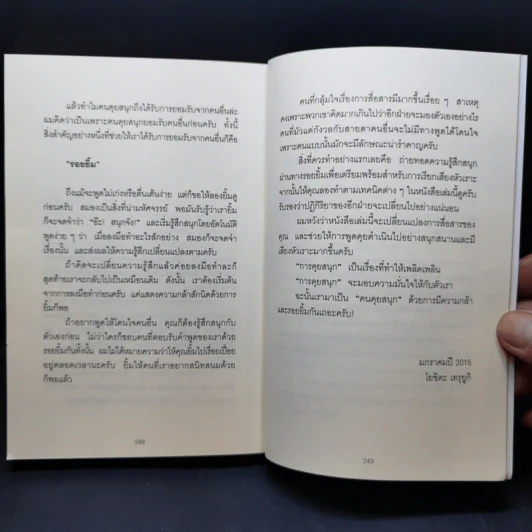 แล้วทำไมคนคุยสนุกถึงได้รับการยอมรับจากคนอื่นล่ะ
ผมคิดว่าเป็นเพราะคนคุยสนุกยอมรับคนอื่นก่อนครับ ทั้งนี้
สิ่งสำคัญอย่างหนึ่งที่ช่วยให้เราได้รับการยอมรับจากคนอื่นก็คือ
"รอยยิ้ม"
ถึงแม้จะพูดไม่เก่งหรือตื่นเต้นง่าย แต่ก็ขอให้ลองยิ้มดู
ก่อนครับ สมองเป็นสิ่งที่น่ามหัศจรรย์ พอมันรับรู้ว่าเรายิ้ม
ก็จะจดจำว่า "อ๊ะ! สนุกจัง!" และเริ่มรู้สึกสนุกโดยอัตโนมัติ
พูดง่าย ๆ ว่า เมื่อลงมือทำอะไรสักอย่าง สมองก็จะจดจำ
เรื่องนั้น และส่งผลให้ความรู้สึกเปลี่ยนแปลงตามครับ
ถ้าคิดจะเปลี่ยนความรู้สึกแล้วค่อยลงมือทำละก็
สุดท้ายเราจะกลับไปเป็นเหมือนเดิม ดังนั้น เราต้องเริ่มต้น
จากการลงมือทำก่อนครับ แค่แสดงความกล้าสักนิดด้วยการ
ยิ้มก็พอ
ถ้าอยากพูดให้โดนใจคนอื่น คุณก็ต้องรู้สึกสนุกกับ
ตัวเองก่อน ไม่ว่าใครก็ชอบคนที่ตอบรับคำพูดของเราด้วย
รอยยิ้มกันทั้งนั้น ผมไม่ได้หมายความว่าให้คุณยิ้มไปเรื่อยเปื่อย
อยู่ตลอดเวลานะครับ ยิ้มให้คนที่เราอยากสนิทสนมด้วย
ก็พอแล้ว
248
คนที่กลุ้มใจเรื่องการสื่อสารมีมากขึ้นเรื่อย ๆ สาเหตุ
คงเพราะพวกเขาคิดมากเกินไปว่าอีกฝ่ายจะมองตัวเองอย่างไร
คนที่มัวแต่กังวลกับสายตาคนอื่นจะไม่มีทางพูดได้โดนใจ
เพราะคนแบบนั้นมักจะมีลักษณะน่ารำคาญครับ
สิ่งที่ควรทำอย่างแรกเลยคือ ถ่ายทอดความรู้สึกสนุก
ผ่านทางรอยยิ้มเพื่อเตรียมพร้อมสำหรับการเรียกเสียงหัวเราะ
จากนั้นให้คุณลองทำตามเทคนิคต่าง ๆ ในหนังสือเล่มนี้ดูครับ
รับรองว่าปฏิกิริยาของอีกฝ่ายจะเปลี่ยนไปอย่างแน่นอน
ผมหวังว่าหนังสือเล่มนี้จะเปลี่ยนแปลงการสื่อสารของ
คุณ และช่วยให้การพูดคุยดำเนินไปอย่างสนุกสนานและมี
เสียงหัวเราะมากขึ้นครับ
"การคุยสนุก" เป็นเรื่องที่ทำให้เพลิดเพลิน
"การคุยสนุก" จะมอบความมั่นใจให้กับตัวเรา
ฉะนั้นเรามาเป็น "คนคุยสนุก" ด้วยการมีความกล้า
และรอยยิ้มกันเถอะครับ!
มกราคมปี 2015
โยชิดะ เทรุยูกิ
249